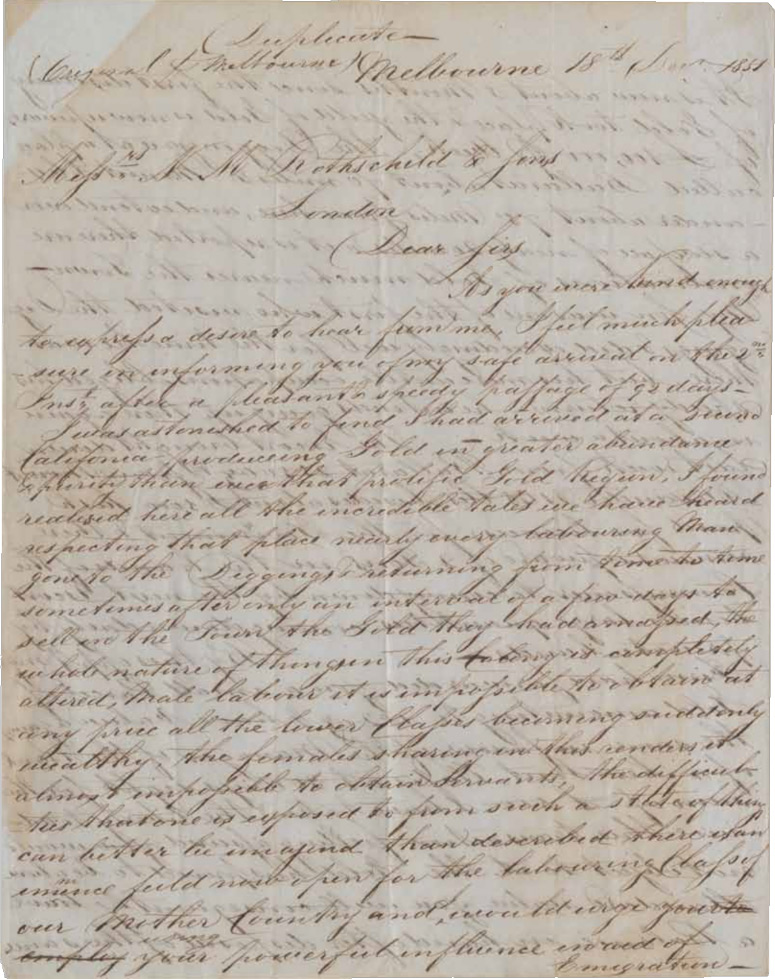 Duplicate
(Original p Melbourne) Melbourne 18th Decr 1851
Messrs N M Rothschild & Sons
London
Dear Sirs
As you were kind enough
to express a desire to hear from me, I feel much plea
sure in informing you of my safe arrival on the 2nd
Inst, after a pleasant & speedy passage of 92 days –
I was astonished to find I had arrived at a second
California producing Gold in greater abundance
& purity than even that prolific Gold Region, I found
realised here all the incredible tales we have heard
respecting that place nearly every labouring Man
gone to the Diggings & returning from time to time
sometimes after only an interval of a few days to
sell in the Town the Gold they had amassed, the
whole nature of things in this Colony is completely
altered, Male labour it is impossible to obtain at
any price all the lower Classes becoming suddenly
wealthy, the females sharing in this renders it
almost impossible to obtain Servants, the difficul
ties that one is exposed to from such a state of things
can better be imagined than described there is an
immence field now open for the labouring Classes of
our Mother Country and, would urge your to
employ using your powerful influence in aid of
Emigration –